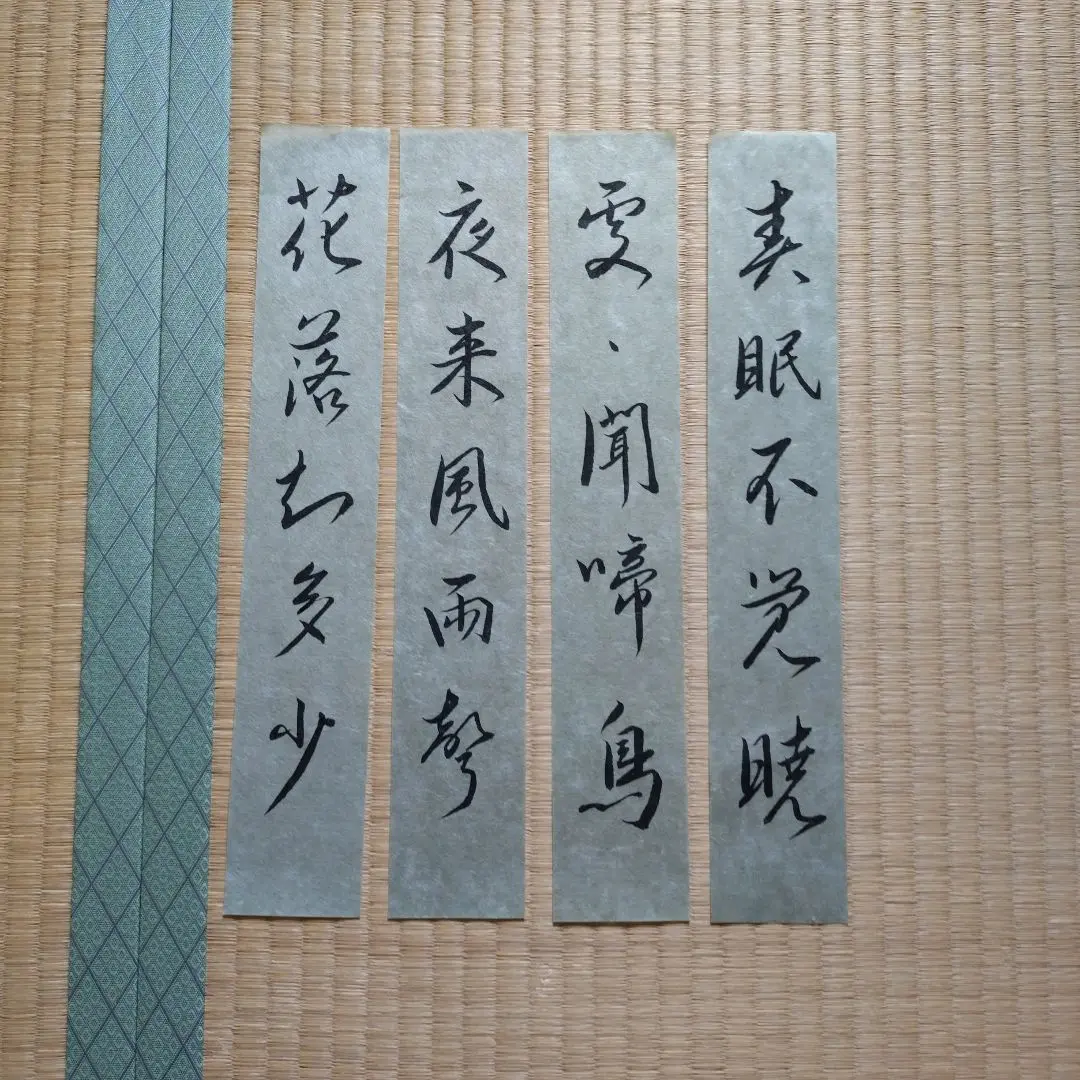 春眠不覚暁
処々聞啼鳥
夜来風雨声
花落知多少